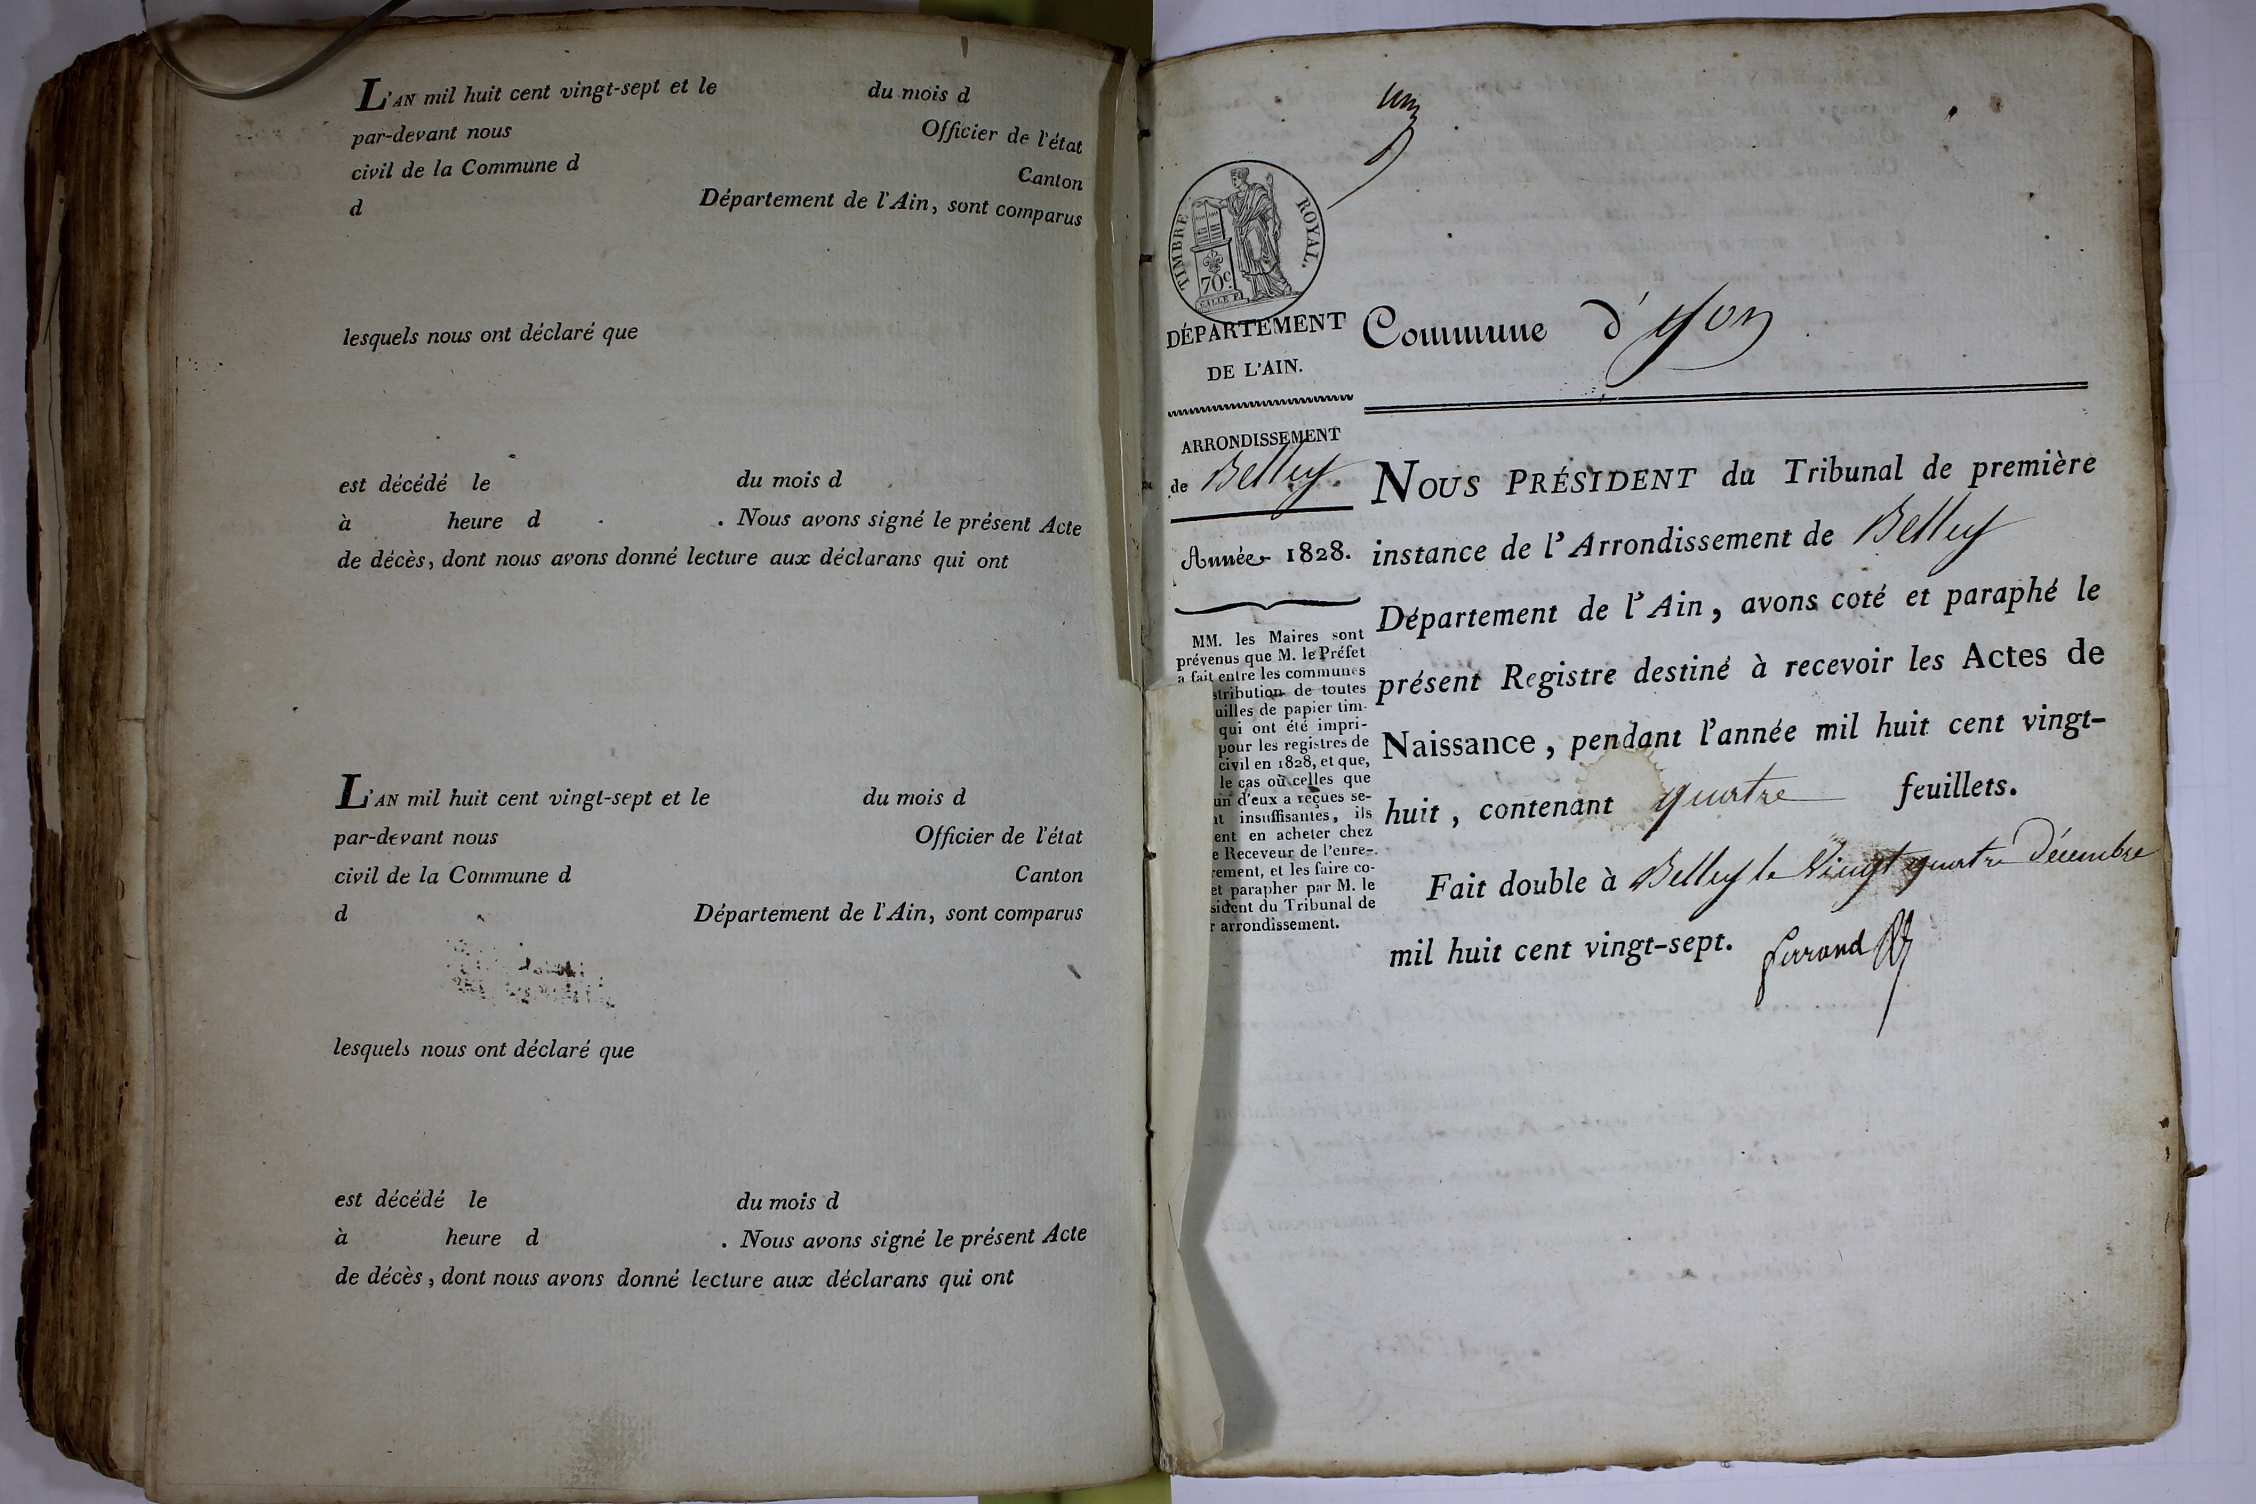 L'AN mil huit cent vingt-sept et le du mois d
par-devant nous Officier de l'état
civil de la Commune d Canton
d Département de l'Ain, sont comparus
lesquels nous ont déclaré que
est décédé le du mois d
à heure d . Nous avons signé le présent Acte
de décès, dont nous avons donné lecture aux déclarans qui ont
L'AN mil huit cent vingt-sept et le du mois d
par-devant nous Officier de l'état
civil de la Commune d Canton
d Département de l'Ain, sont comparus
lesquels nous ont déclaré que
est décédé le du mois d
à heure d . Nous avons signé le présent Acte
de décès, dont nous avons donné lecture aux déclarans qui ont
TIMBRE ROYAL.
70c.
DÉPARTEMENT
DE L'AIN.
ARRONDISSEMENT
de Belley.
Année 1828.
MM. les Maires sont
prévenus que M. le Préfet
a fait entre les communes
stribution de toutes
uilles de papier tim-
qui ont été impri-
pour les registres de
civil en 1828, et que,
le cas où celles que
un d'eux a reçues se-
nt insuffisantes, ils
ent en acheter chez
e Receveur de l'enre-
rement, et les faire co-
et parapher par M. le
sident du Tribunal de
r arrondissement.
Commune d'yon
NOUS PRÉSIDENT du Tribunal de première
instance de l'Arrondissement de Belley
Département de l'Ain, avons coté et paraphé le
présent Registre destiné à recevoir les Actes de
Naissance, pendant l'année mil huit cent vingt-
huit, contenant quatre feuillets.
Fait double à Belley le Vingt quatre Décembre
mil huit cent vingt-sept.